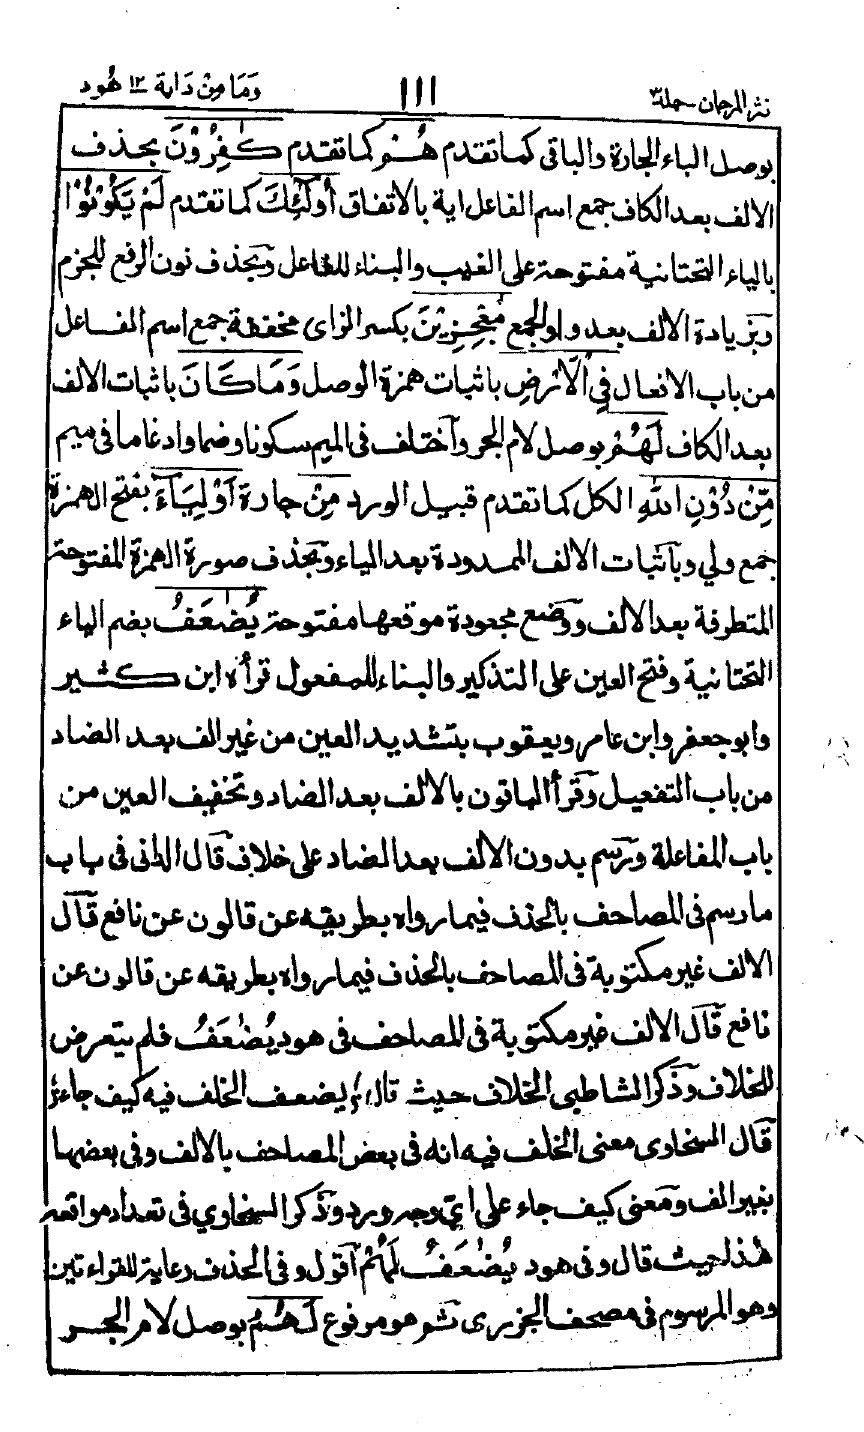 نثر المرجان - جلد ٣ ١١١ وَمَا مِنْ دَابة ١٢ هُود
بوصل الباء الجارة والباقى كما تقدم هُمْ كما تقدم كٰفِرُوْنَ بحذف
الالف بعد الكاف جمع اسم الفاعل اية بالاتفاق أُولٰٓئِكَ كما تقدم لَمْ يَكُوْنُوْا
بالياء التحتانية مفتوحة على الغيب والبناء للفاعل وبحذف نون الرفع للجزم
وبزيادة الالف بعد واو الجمع مُعْجِزِيْنَ بكسر الزاى مخففة جمع اسم الفاعل
من باب الافعال فِى الْاَرْضِ باثبات همزة الوصل وَمَا كَانَ باثبات الالف
بعد الكاف لَهُمْ بوصل لام الجر واختلف فى الميم سكونا وضما وادغاما فى ميم
مِّنْ دُوْنِ اللّٰهِ الكل كما تقدم قبيل الورد مِنْ جارة اَوْلِيَآءَ بفتح الهمزة
جمع ولي وباثبات الالف الممدودة بعد الياء وبحذف صورة الهمزة المفتوحة
المتطرفة بعد الالف ووضع مجعودة موقعها مفتوحة يُضٰعَفُ بضم الياء
التحتانية وفتح العين على التذكير والبناء للمفعول قرأه ابن كثير
وابو جعفر وابن عامر ويعقوب بتشديد العين من غير الف بعد الضاد
من باب التفعيل وقرأ الباقون بالالف بعد الضاد وتخفيف العين من
باب المفاعلة ورسم بدون الالف بعد الضاد على خلاف قال الدانى فى باب
ما رسم فى المصاحف بالحذف فيما رواه بطريقه عن قالون عن نافع قال
الالف غير مكتوبة فى المصاحف بالحذف فيما رواه بطريقه عن قالون عن
نافع قال الالف غير مكتوبة فى المصاحف فى هود يُضٰعَفُ فلم يتعرض
للخلاف وذكر الشاطبى الخلاف حيث قال ؛ يضعف الخلف فيه كيف جاء ؛
قال السخاوى معنى الخلف فيه انه فى بعض المصاحف بالالف وفى بعضها
بغير الف ومعنى كيف جاء على اي وجه ورد وذكر السخاوي فى تعداد مواقعه
هذا حيث قال وفى هود يُضٰعَفُ لَهُمُ اقول وفى الحذف رعاية للقراءتين
وهو المرسوم فى مصحف الجزرى ثم هو مرفوع لَهُمُ بوصل لام الجر